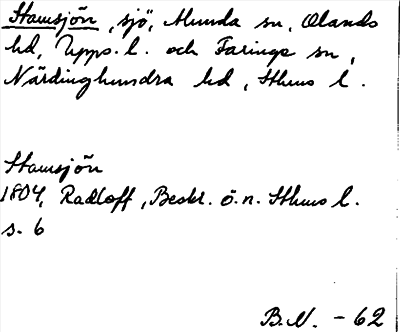 Stamsjön, sjö, Alunda sn, Olands
hd, Upps. l. och Faringe sn,
Närdinghundra hd, Sthms l.
Stamsjön
1804, Radloff, Beskr. ö. n. Sthms l.
s. 6
B.N. - 62